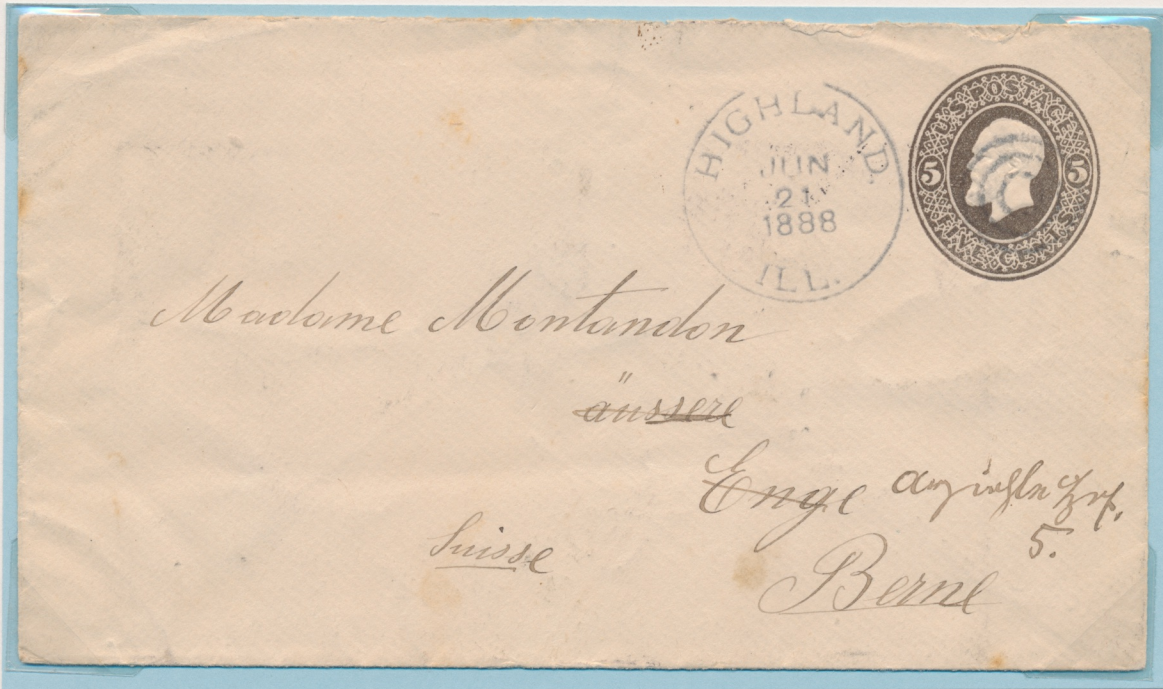 HIGHLAND.
JUN
21
1888
ILL.
U.S. POSTAGE
5 5
FIVE CENTS
Madame Montandon
äussere
Enge
5.
Suisse
Berne